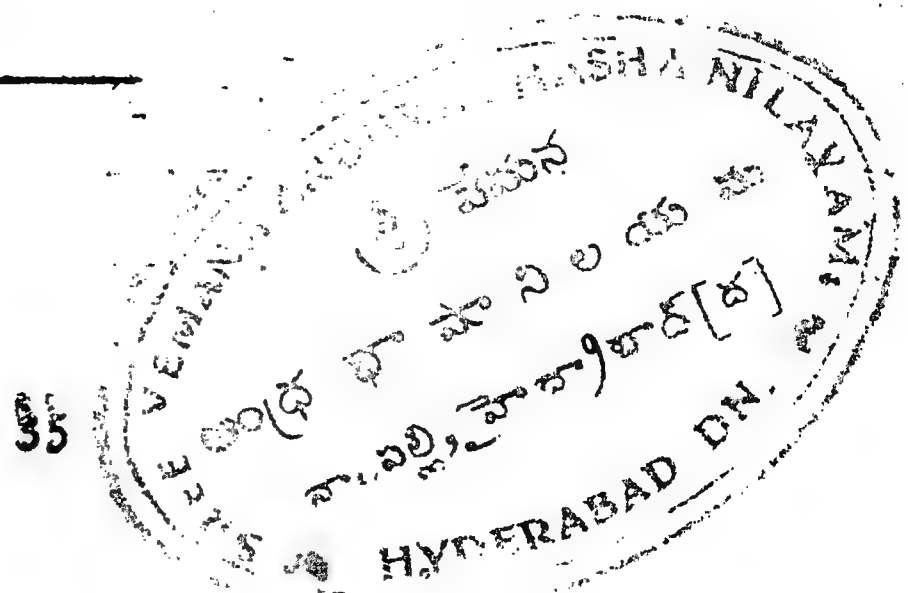 SREE VEMANA ANDHRA BHASHA NILAYAM,
శ్రీ వేమన
ఆంధ్ర భాషా నిలయము
హైదరాబాద్ [ద]
HYDERABAD DN.
55